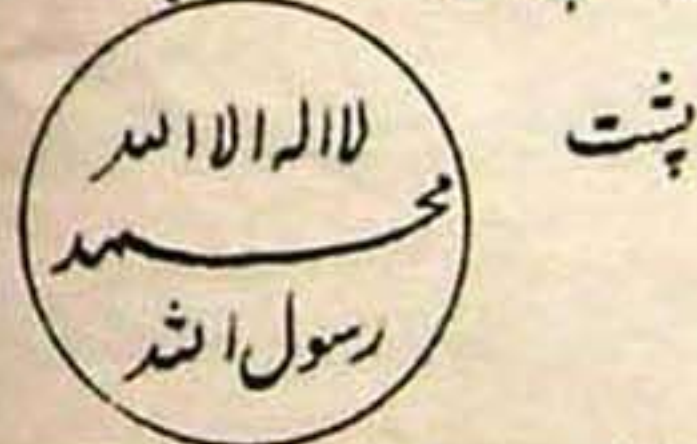 پشت
لا اله الا الله
محمد
رسول الله